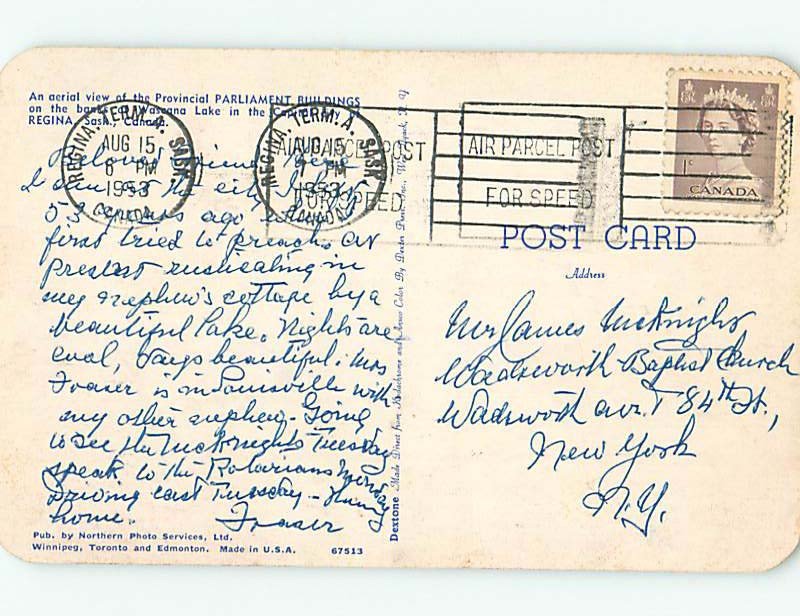 An aerial view of the Provincial PARLIAMENT BUILDINGS
on the banks of Wascana Lake in the Capital City
REGINA, Sask., Canada.
REGINA. TERM. A. SASK.
AUG 15
6 PM
1953
CANADA
REGINA. TERM. A. SASK.
AUG 15
PM
1953
CANADA
AIR PARCEL POST
FOR SPEED
AIR PARCEL POST
FOR SPEED
1¢
CANADA
POST CARD
Address
Beloved Friend: Here
I am in the city where
53 years ago I
first tried to preach. At
present rusticating in
my nephew's cottage by a
beautiful lake. Nights are
cool, days beautiful. Mrs
Fraser is in Louisville with
my other nephew. Going
to see the McKnights Tuesday
speak to the Rotarians Monday
Driving east Tuesday –
home.
Fraser
Mr James McKnight
Wadsworth Baptist Church
Wadsworth Ave. + 84th St.,
New York
N.Y.
Pub. by Northern Photo Services, Ltd.
Winnipeg, Toronto and Edmonton. Made in U.S.A. 67513
Dextone Made Direct from Kodachrome and Ansco Color By Dexter Press, Inc., West Nyack, N. Y